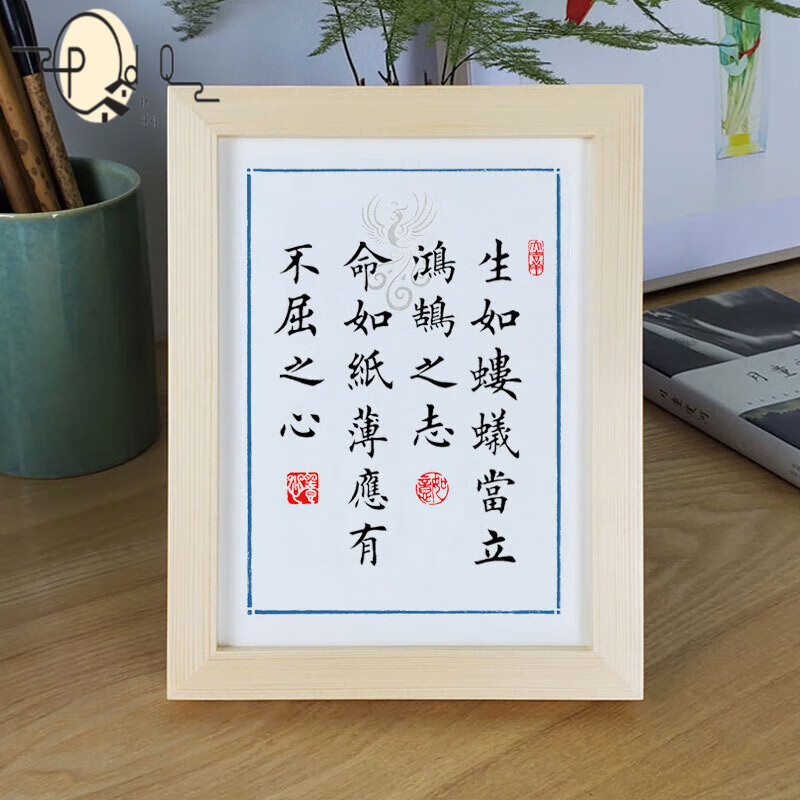 生如螻蟻當立
鴻鵠之志
命如紙薄應有
不屈之心
如意